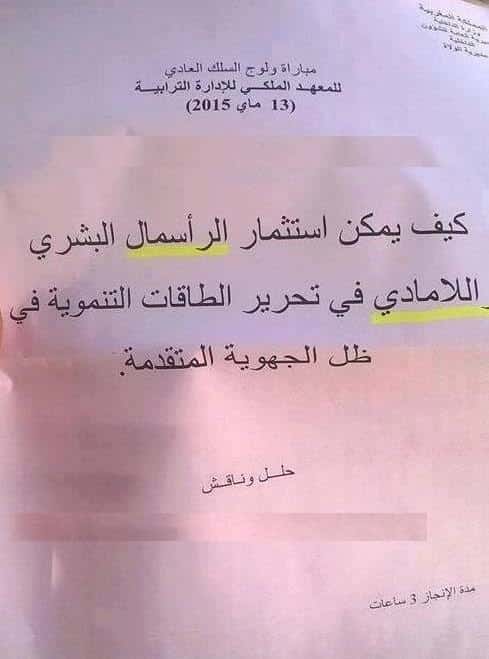 المملكة المغربية
وزارة الداخلية
الداخلية
مباراة ولوج السلك العادي
للمعهد الملكي للإدارة الترابية
(13 ماي 2015)
كيف يمكن استثمار الرأسمال البشري
اللامادي في تحرير الطاقات التنموية في
ظل الجهوية المتقدمة.
حلل وناقش
مدة الإنجاز 3 ساعات